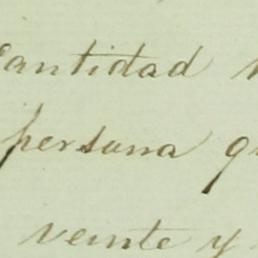 Cantidad
persona
veinte y